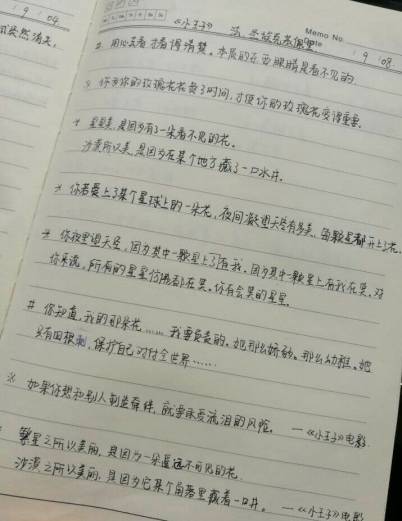 9 / 04
突然消失,
Memo No.
Date 9 / 08.
《小王子》 法.圣埃克苏佩里
# 用心去看才看得清楚。本质的东西眼睛是看不见的.
你为你的玫瑰花花费了时间,才使你的玫瑰花变得重要.
星星美,是因为有了一朵看不见的花。
沙漠所以美,是因为在某个地方藏了一口水井。
你若爱上了某个星球上的一朵花。夜间凝望天空有多美,每颗星都开上了花。
你夜里望天空,因为其中一颗星上有我。因为其中一颗星上有我在笑,对
你来说,所有的星星仿佛都在笑。你有会笑的星星.
# 你知道,我的那朵花……我要负责的。她那么娇弱。那么幼稚。她
只有四根刺,保护自己对付全世界……
※ 如果你想和别人制造羁绊,就要承受流泪的风险。 —《小王子》电影
繁星之所以美丽,是因为一朵遥远不可见的花.
沙漠之所以美丽,是因为它某个角落里藏着一口井。 —《小王子》电影